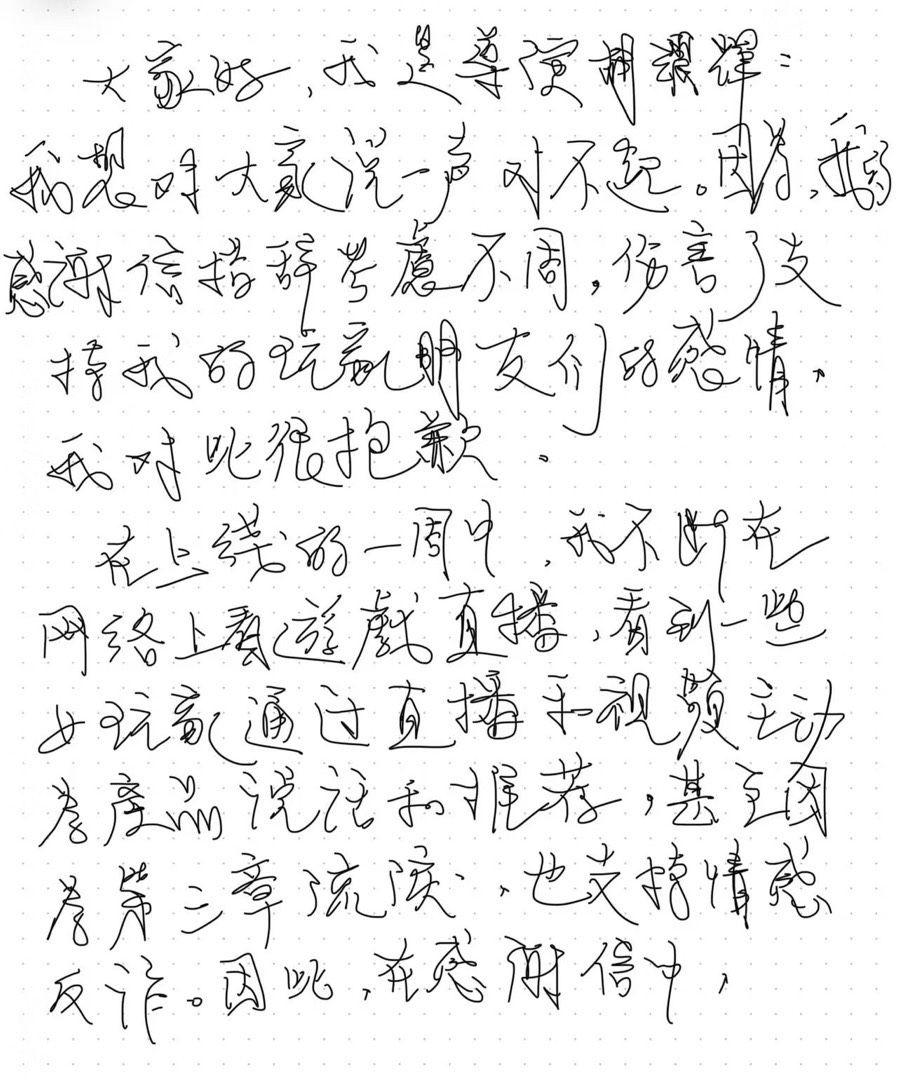 大家好,我是導演胡耀輝:
我想对大家说一声对不起。因为,我的
感謝信措辞考慮不周,伤害了支
持我的玩家朋友们的感情,
我对此很抱歉.
在上线的一周中,我不断在
网络上看遊戲直播,看到一些
女玩家通过直播和视频主动
為產品说话和推荐,甚至因
為第三章流淚,也支持情感
反诈。因此,在感謝信中,